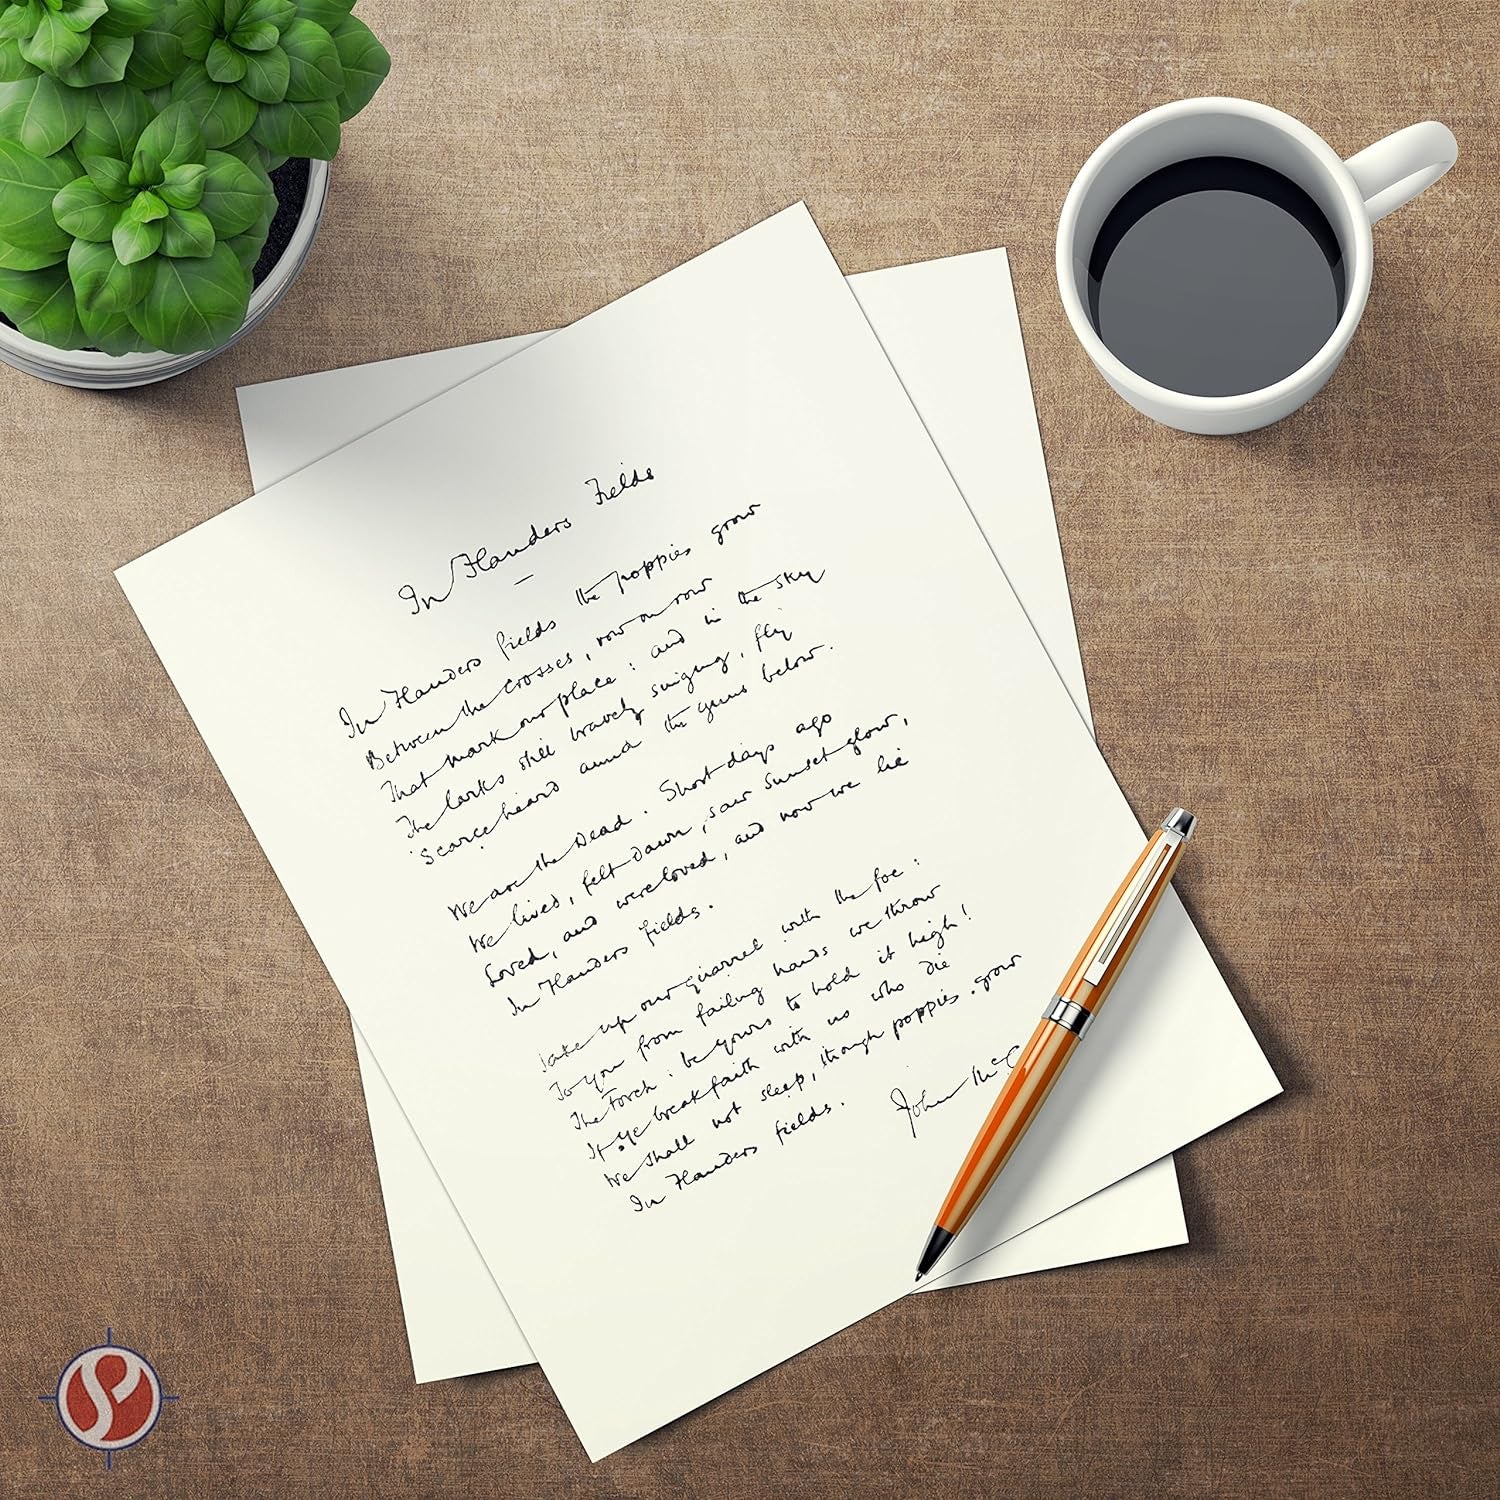 In Flanders Fields
—
In Flanders fields the poppies grow
Between the crosses, row on row
That mark our place: and in the sky
The larks still bravely singing, fly
Scarce heard amid the guns below.
We are the Dead. Short days ago
We lived, felt dawn, saw sunset glow,
Loved, and were loved, and now we lie
In Flanders fields.
Take up our quarrel with the foe:
To you from failing hands we throw
The Torch: be yours to hold it high!
If ye break faith with us who die
We shall not sleep, though poppies grow
In Flanders fields.
John McC